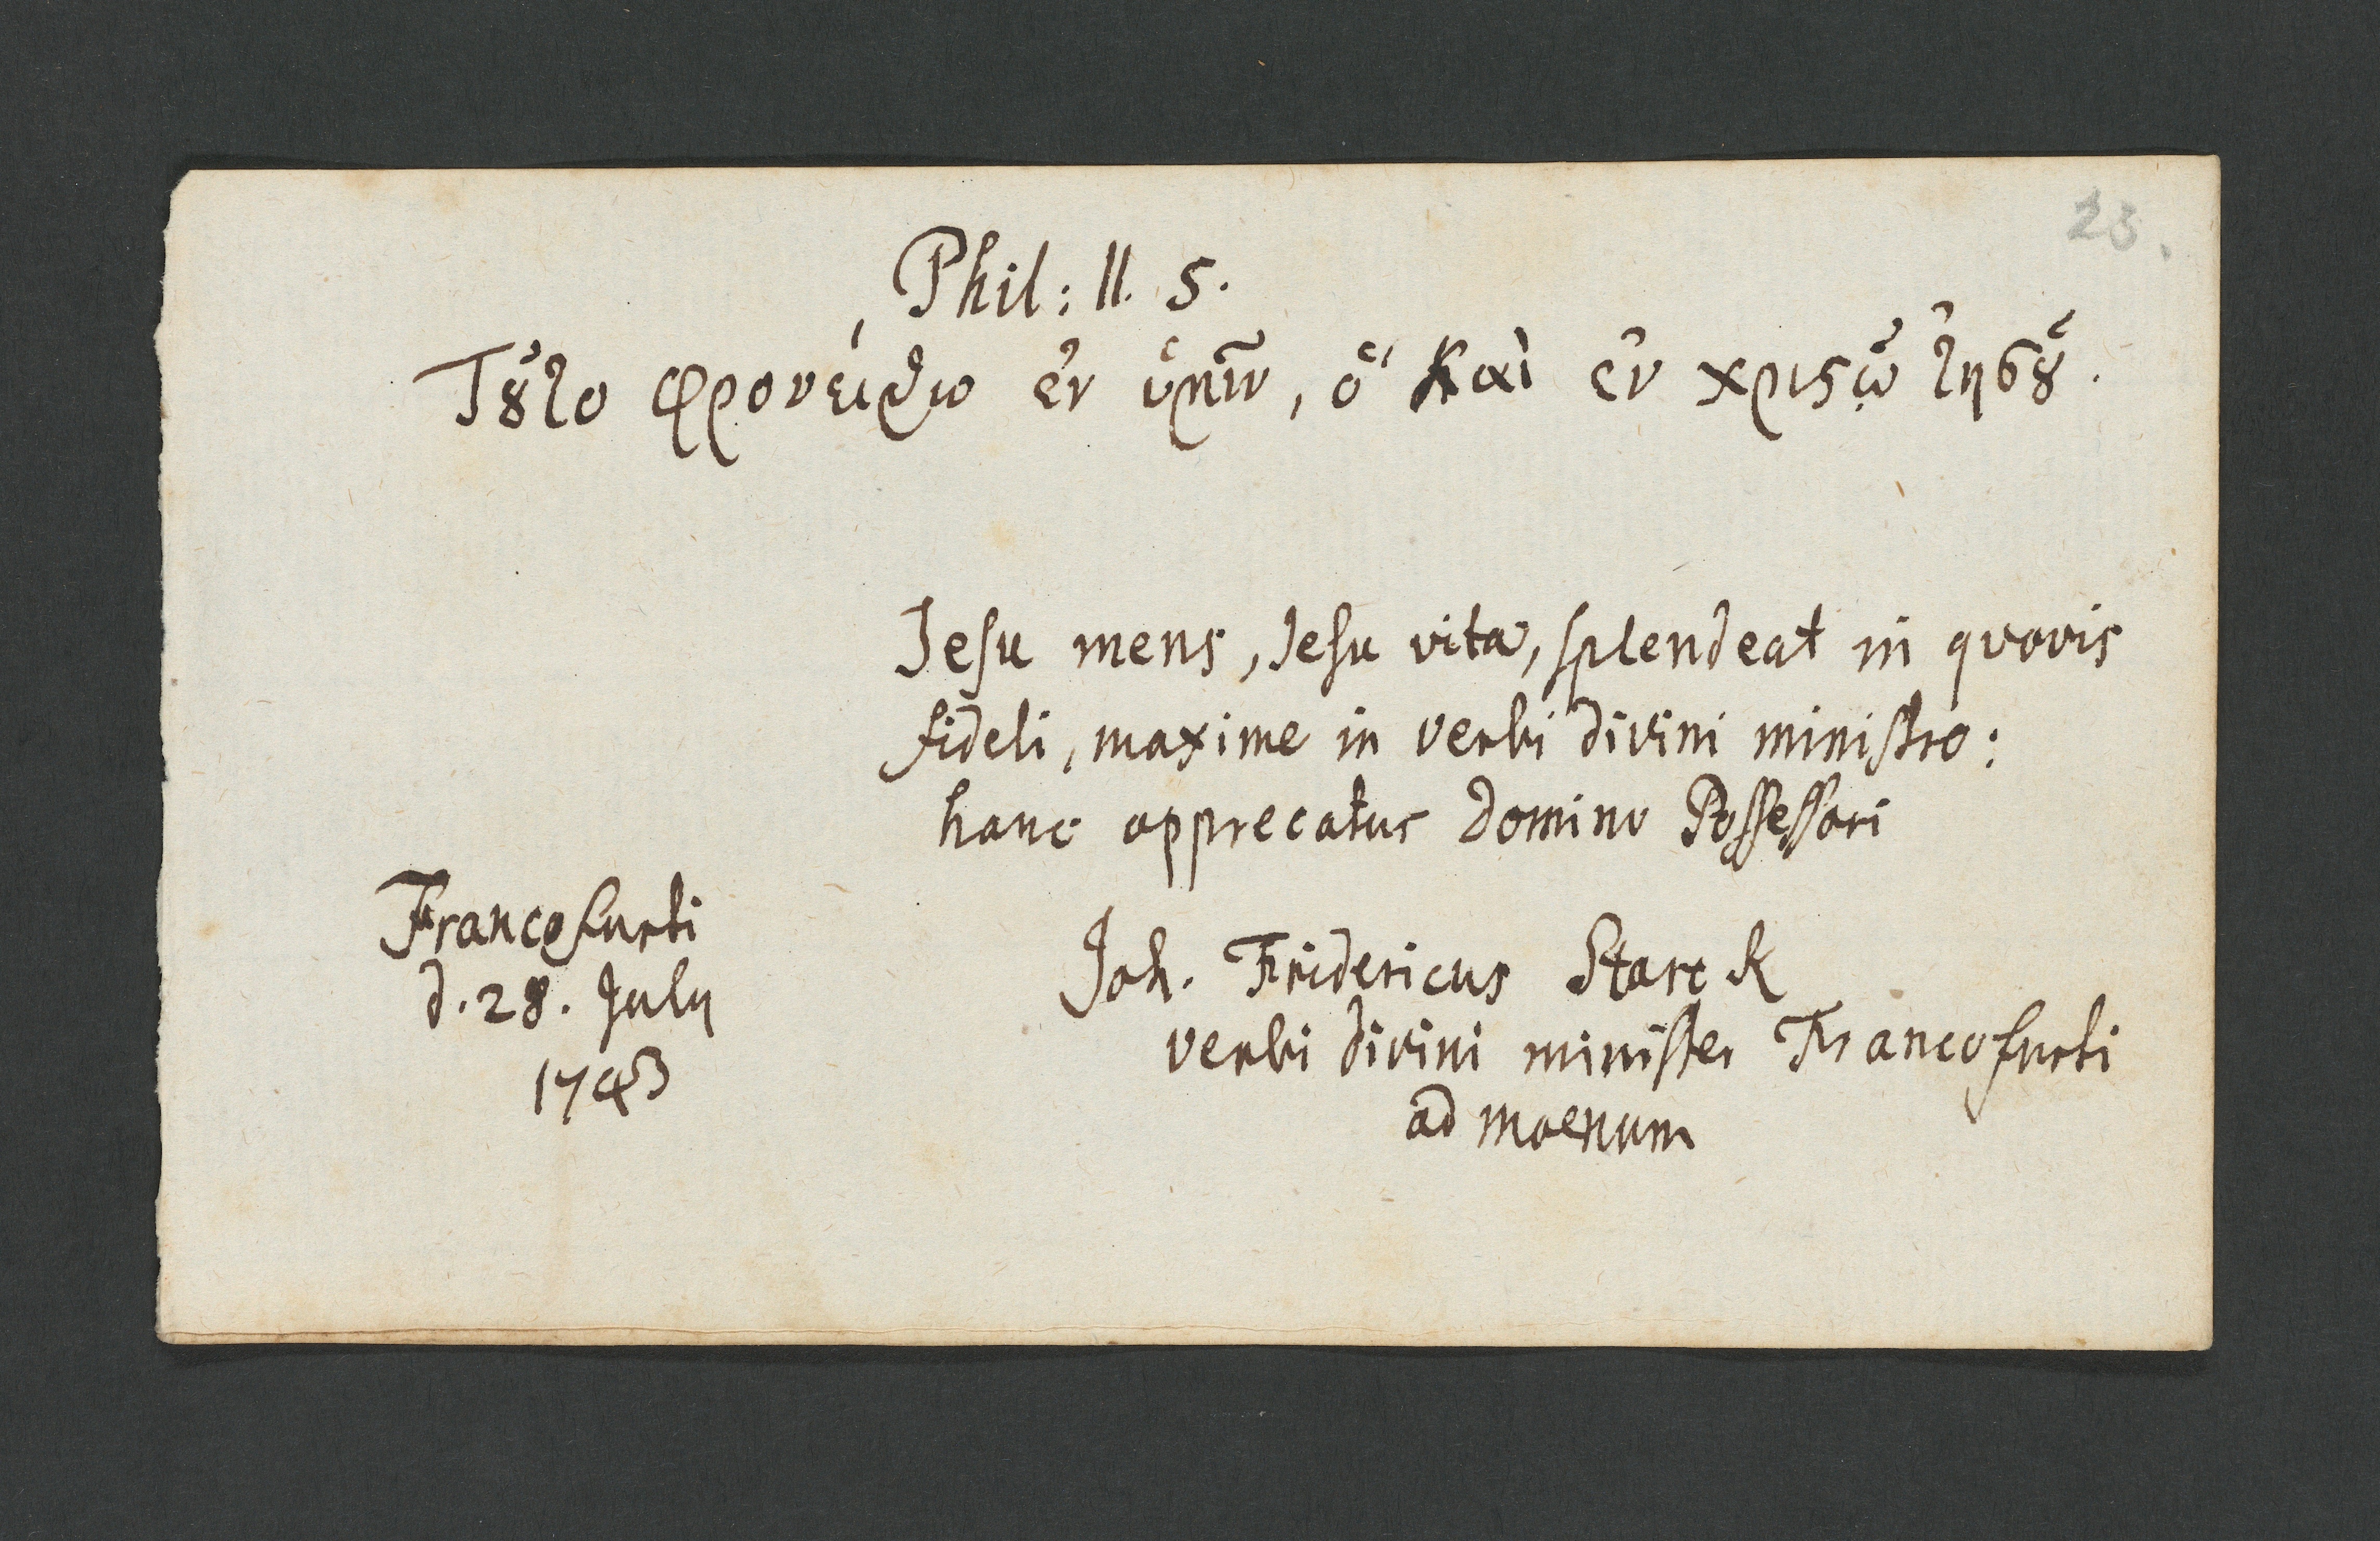 23.
Phil: II. 5.
Τȣ͂το φρονείσθω ἐν ὑμῖν, ὃ καὶ ἐν χριϛῷ ἰησȣ͂.
Jesu mens, Jesu vita, splendeat in quovis
fideli, maxime in verbi divini ministro:
hanc apprecatur Domino Possessori
Francofurti
d. 28. July
1743
Joh. Fridericus Starck
verbi divini minister Francofurti
ad moenum